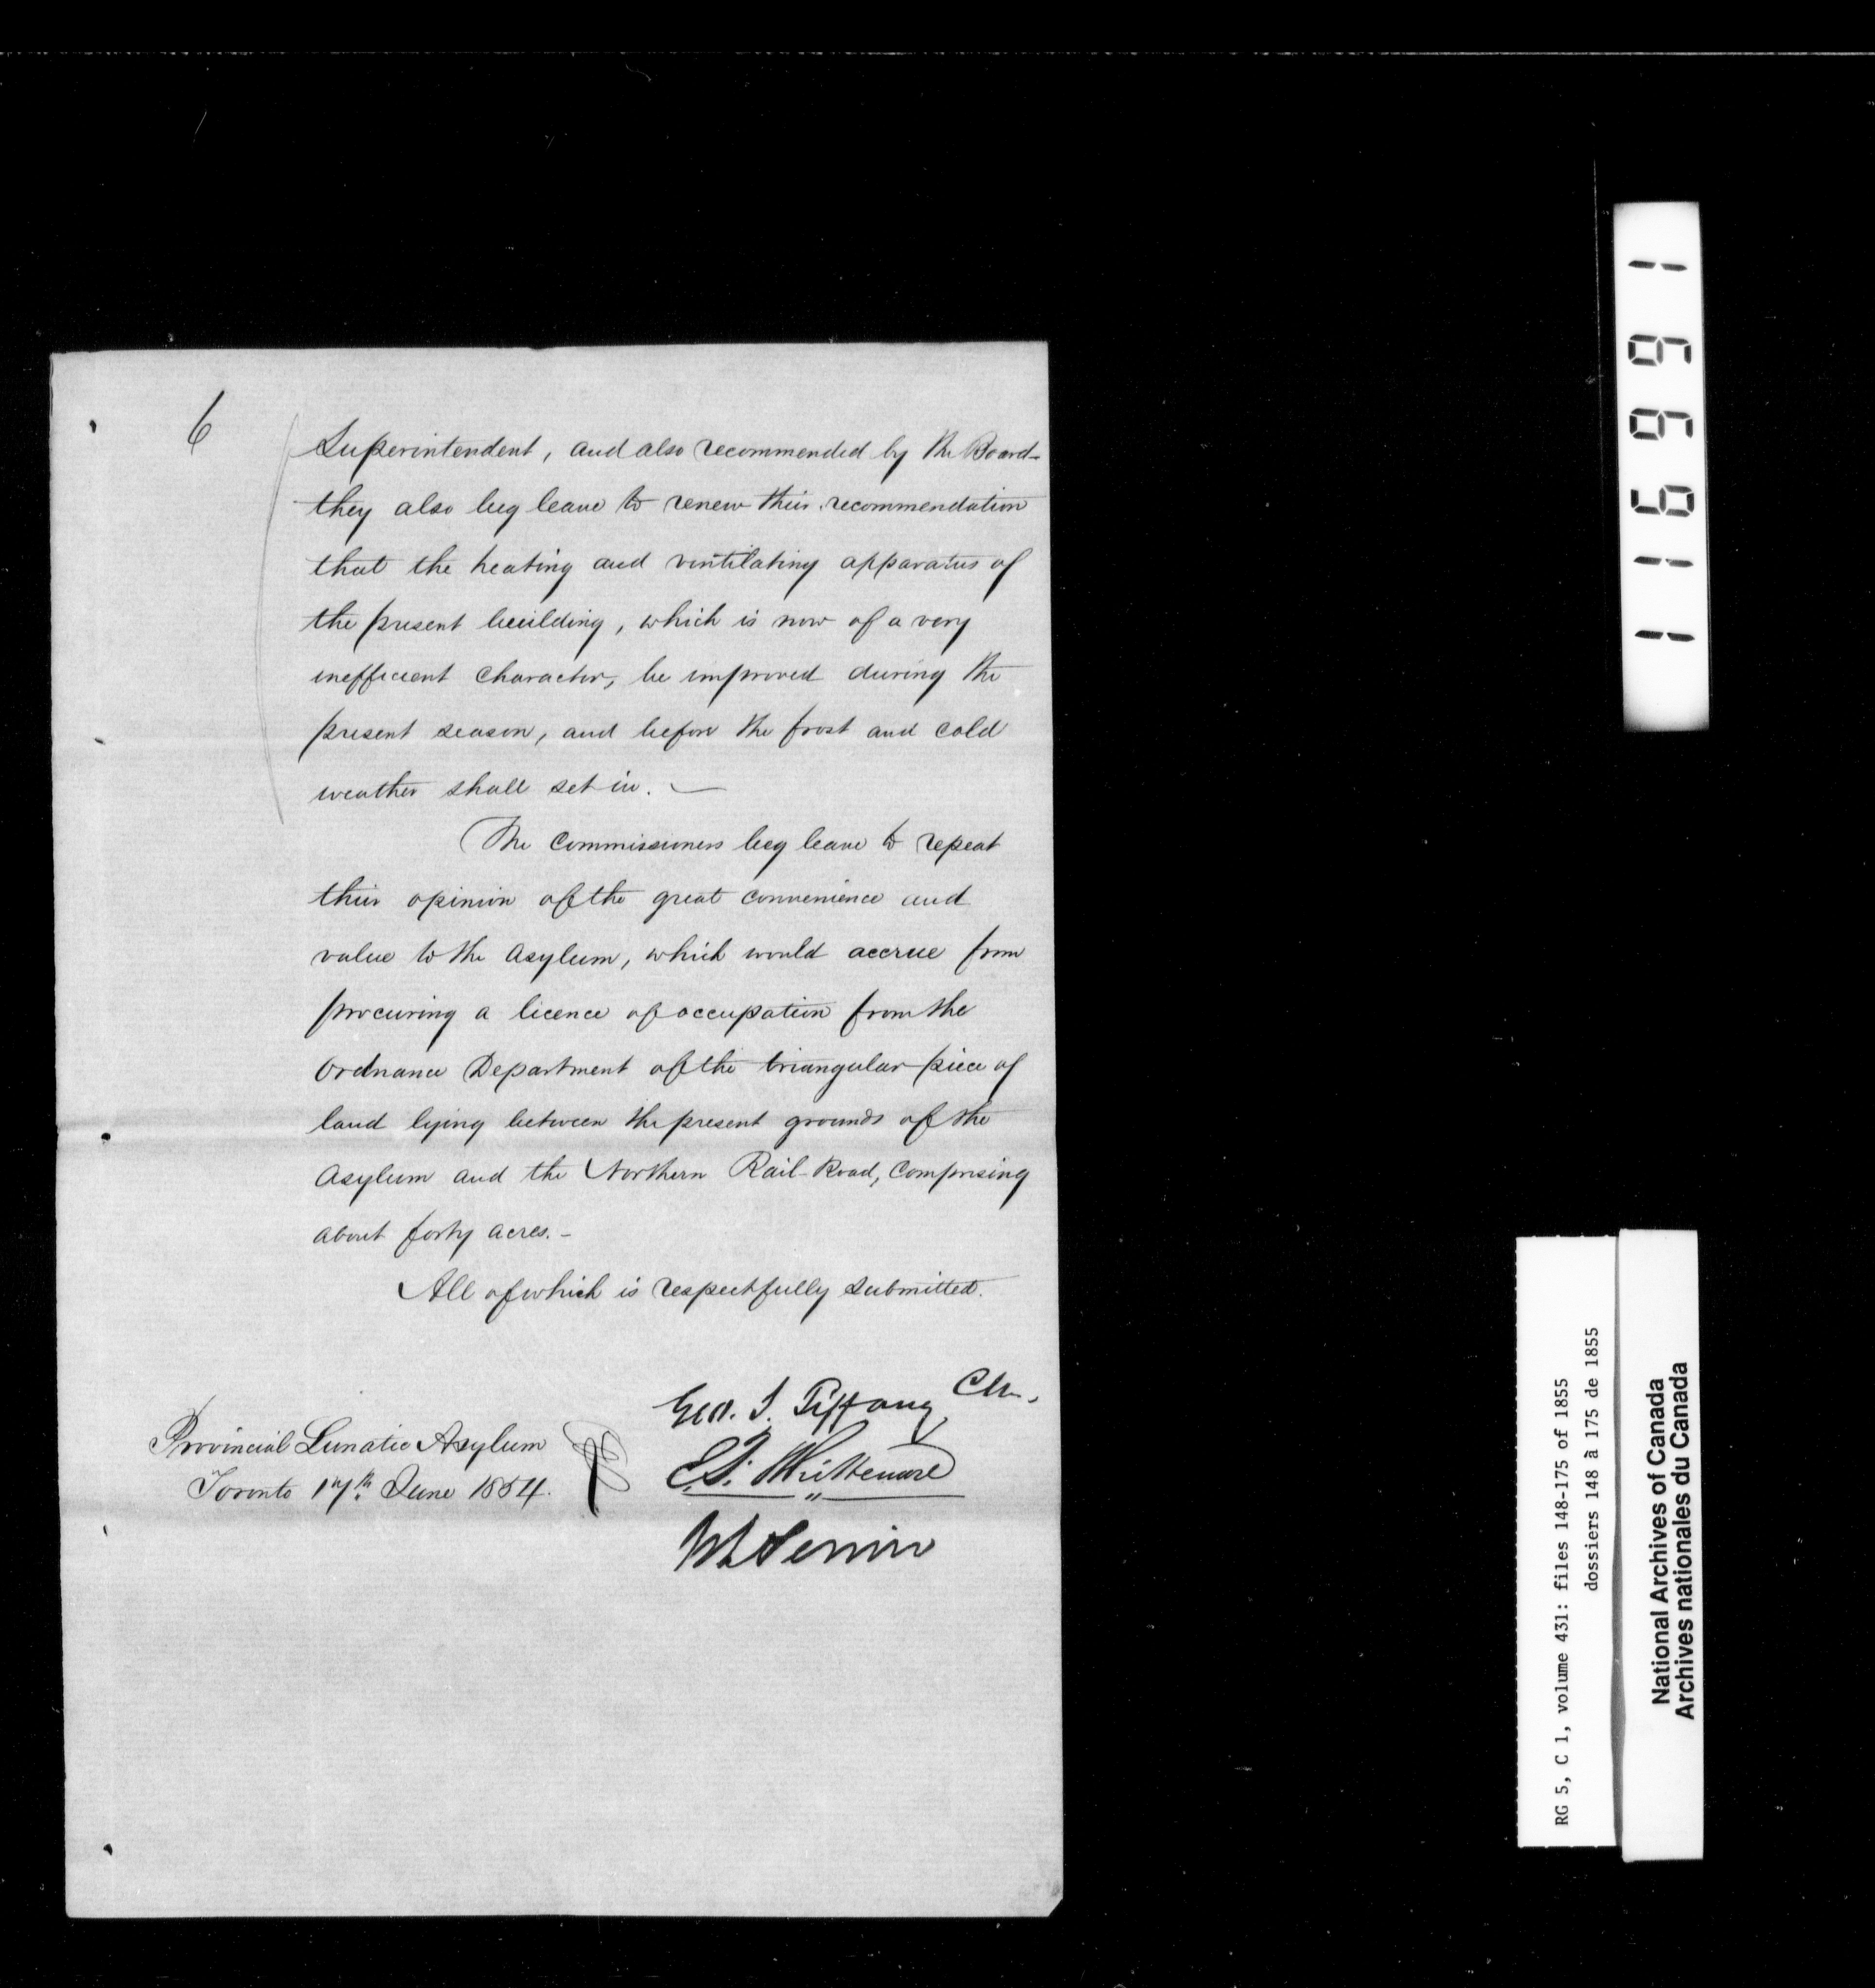 6
Superintendent, and also recommended by the Board-
they also beg leave to renew their recommendation
that the heating and ventilating apparatus of
the present building, which is now of a very
inefficient character, be improved during the
present season, and before the frost and cold
weather shall set in. —
The Commissioners beg leave to repeat
their opinion of the great convenience and
value to the Asylum, which would accrue from
procuring a licence of occupation from the
Ordnance Department of the triangular piece of
land lying between the present grounds of the
Asylum and the Northern Rail-Road, Comprising
about forty acres. -
All of which is respectfully submitted.
Geo. S. Tiffany Chn.
E.F. Whittemore
Provincial Lunatic Asylum
Toronto 17th. June 1854.
119991
RG 5, C 1, volume 431: files 148-175 of 1855
dossiers 148 à 175 de 1855
National Archives of Canada
Archives nationales du Canada